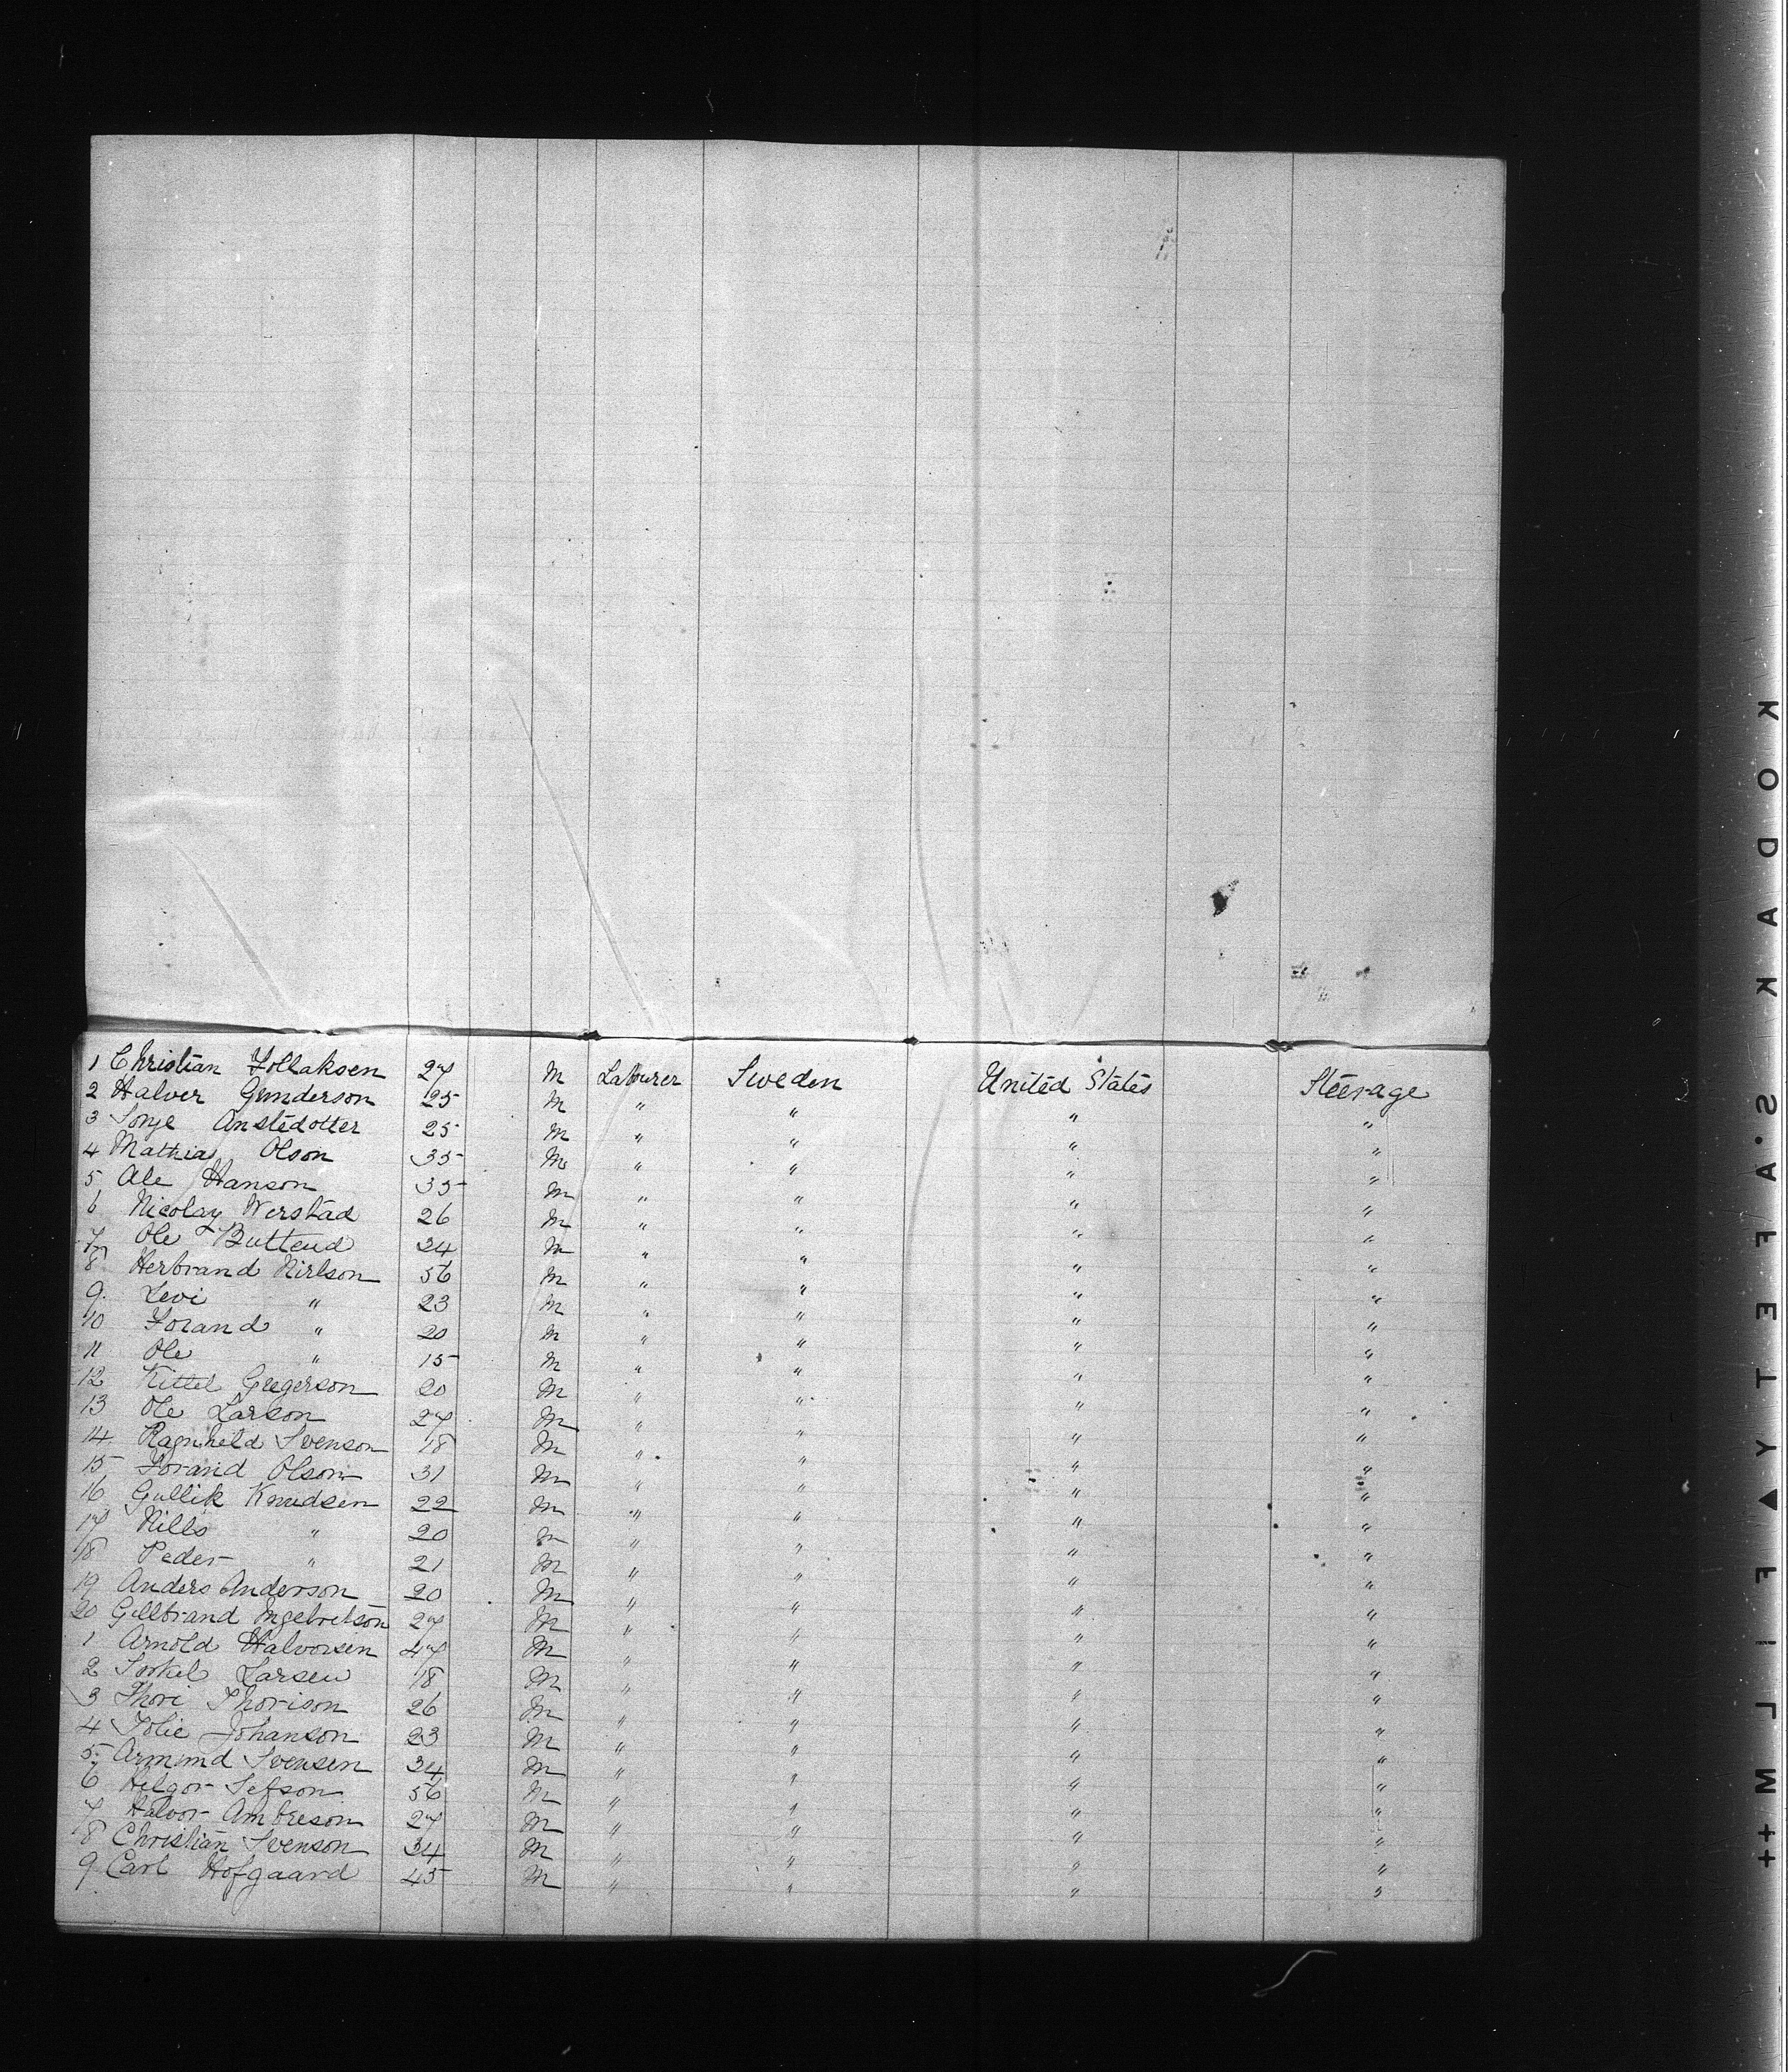 1 Christian Tollaksen 27 M Labourer Sweden United States Steerage
2 Halver Gunderson 25 M " " " "
3 Sonje Anstedotter 25 M " " " "
4 Mathias Olson 35 M " " " "
5 Ole Hanson 35 M " " " "
6 Nicolay Werstad 26 M " " " "
7 Ole Buttend 34 M " " " "
8 Herbrand Nirlson 56 M " " " "
9 Levi " 23 M " " " "
10 Torand " 20 M " " " "
11 Ole " 15 M " " " "
12 Kittel Gregerson 20 M " " " "
13 Ole Larson 27 M " " " "
14 Ragnheld Svenson 18 M " " " "
15 Torand Olson 31 M " " " "
16 Gullik Knudsen 22 M " " " "
17 Nills " 20 M " " " "
18 Peder " 21 M " " " "
19 Anders Anderson 20 M " " " "
20 Gullbrand Ingebretson 27 M " " " "
1 Arnold Halvorsen 47 M " " " "
2 Torkel Larsen 18 M " " " "
3 Thori Thorison 26 M " " " "
4 Tolie Johanson 23 M " " " "
5 Armund Svensen 34 M " " " "
6 Helgor Sefson 56 M " " " "
7 Halvor Ambreson 27 M " " " "
8 Christian Svenson 34 M " " " "
9 Carl Hofgaard 45 M " " " "
KODAK S.AFETY ▲ FILM ++